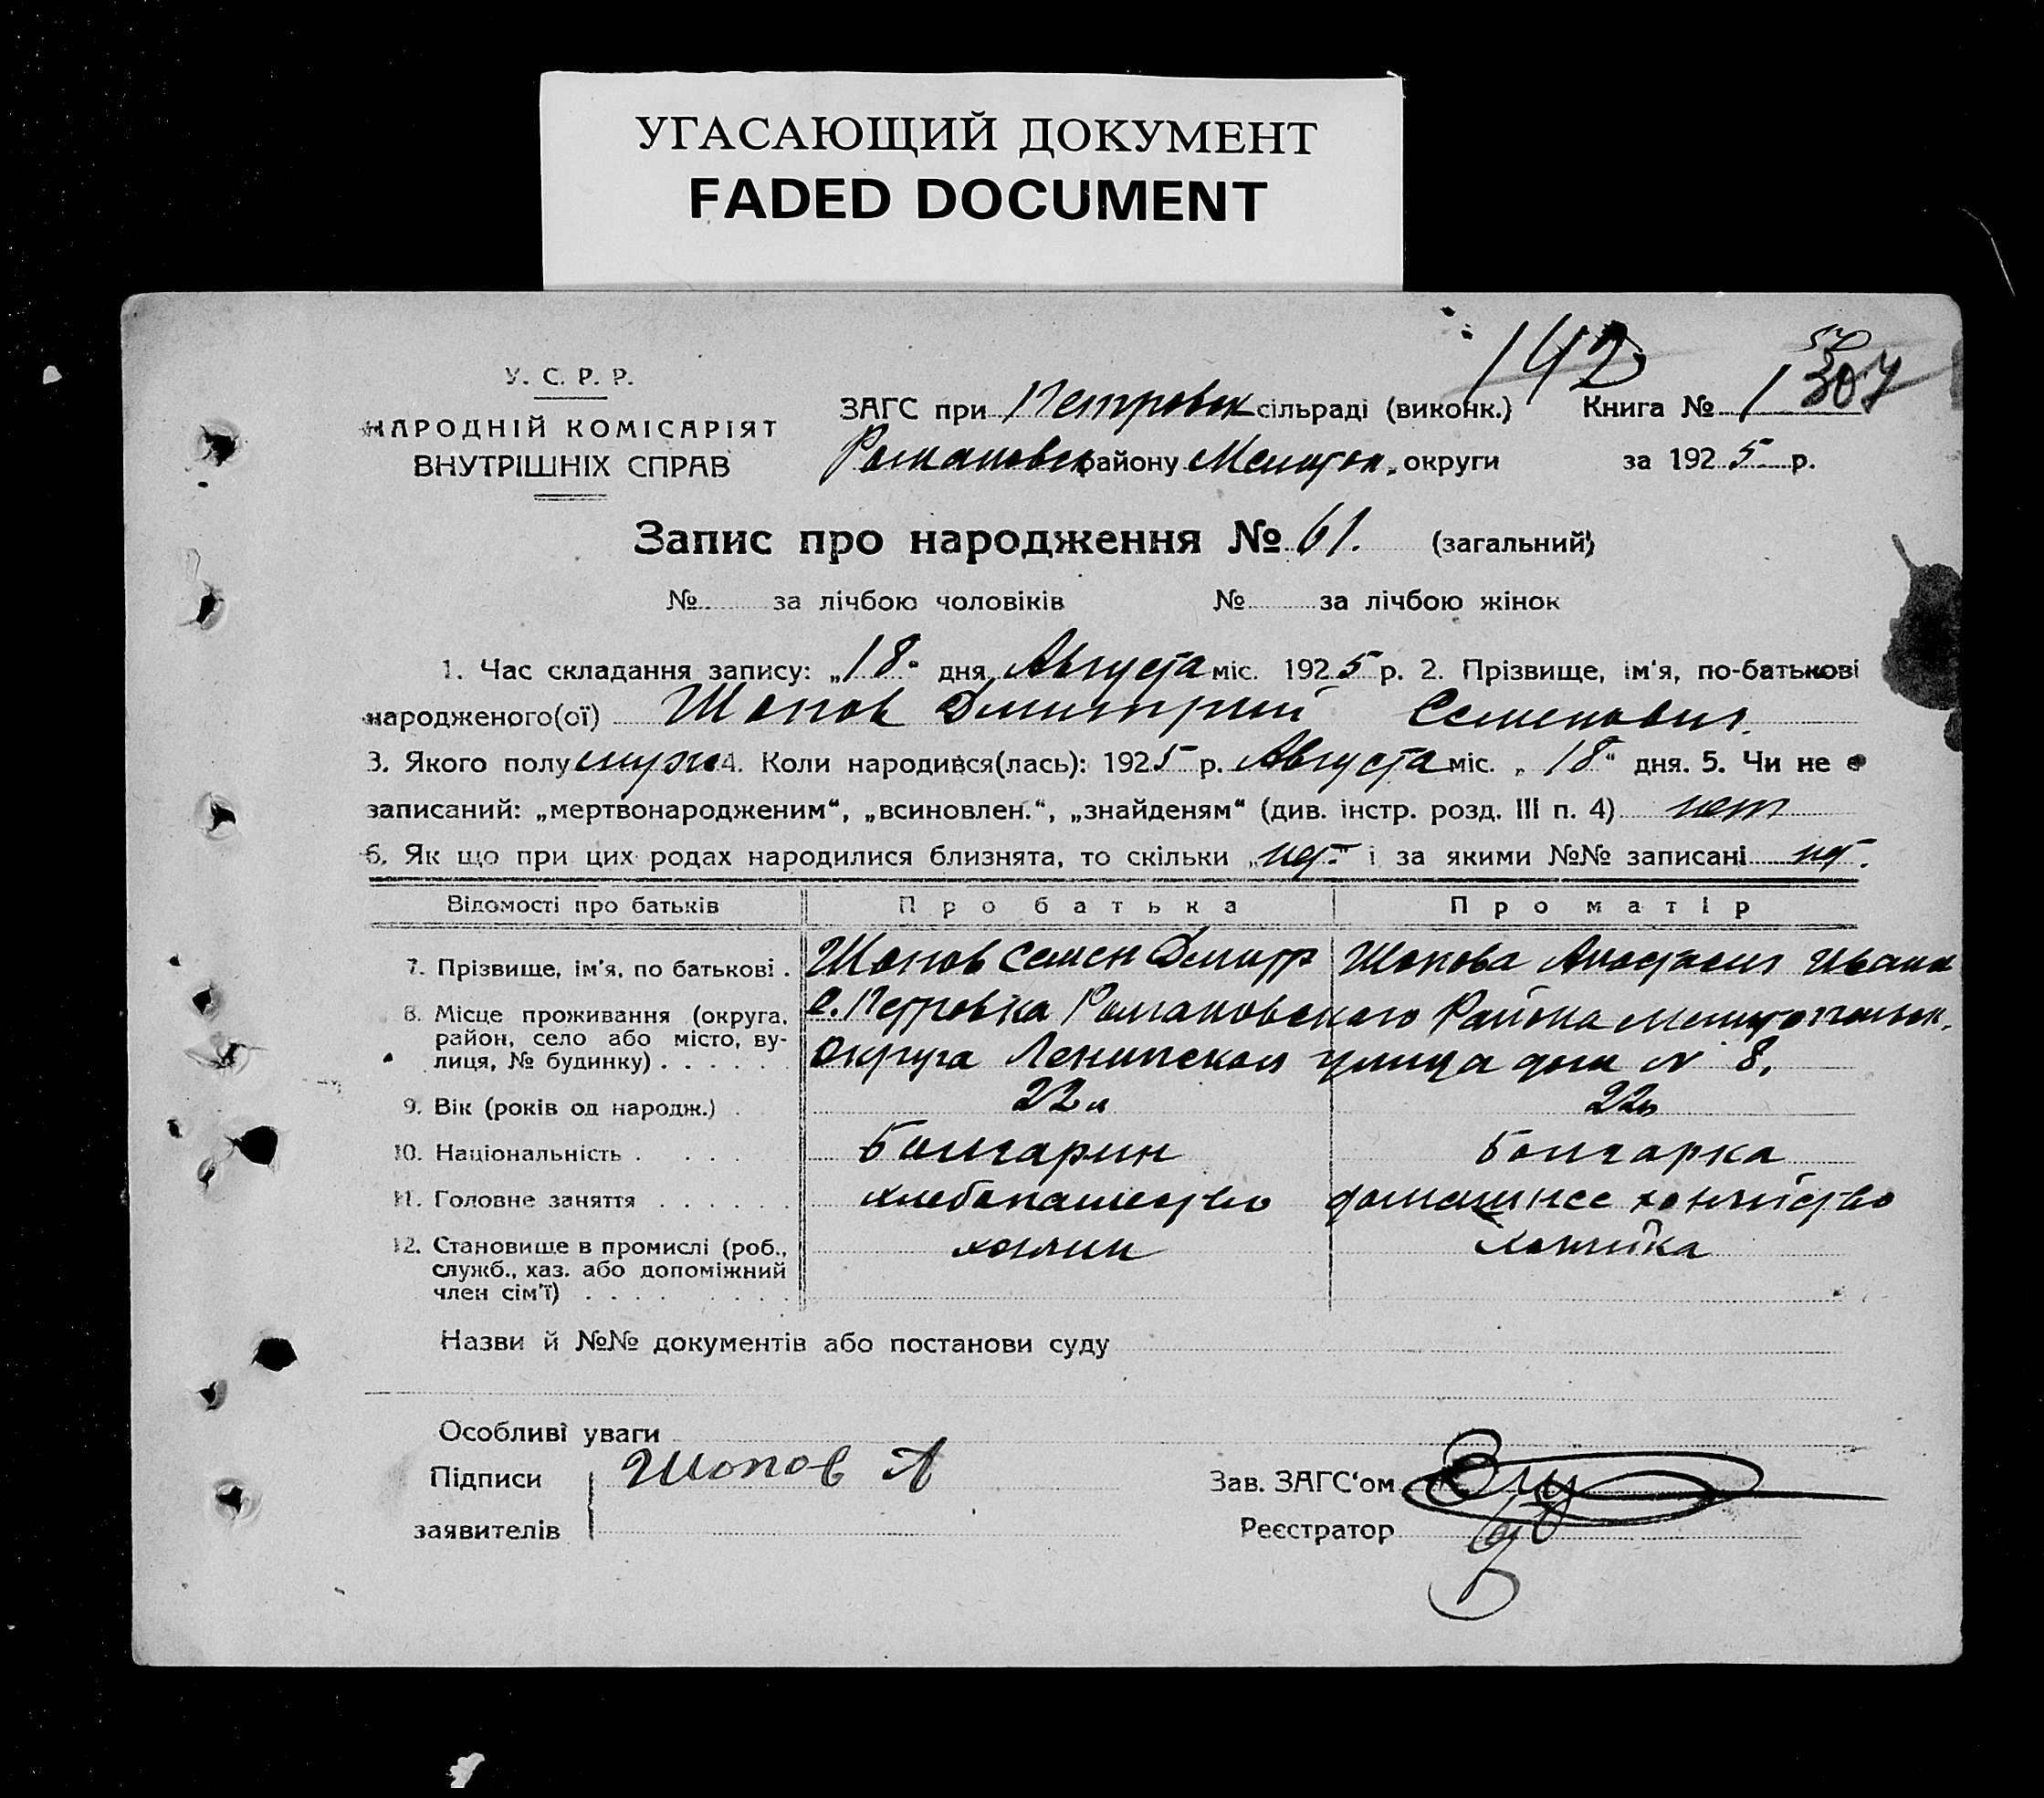 УГАСАЮЩИЙ ДОКУМЕНТ
FADED DOCUMENT
142
307
У. С. Р. Р.
НАРОДНІЙ КОМІСАРІЯТ
ВНУТРІШНІХ СПРАВ
ЗАГС при Петровск сільраді (виконк.) Книга № 1
Романовск району Мелитоп. округи за 1925 р.
Запис про народження № 61. (загальний)
№ за лічбою чоловіків № за лічбою жінок
1. Час складання запису: „18“ дня Августа міс. 1925 р. 2. Прізвище, ім'я, по-батькові
народженого(ої) Шопов Димитрий Семенович.
3. Якого полу мужс 4. Коли народився(лась): 1925 р. Августа міс. „18“ дня. 5. Чи не є
записаний: „мертвонародженим“, „всиновлен.“, „знайденям“ (див. інстр. розд. III п. 4) нет
6. Як що при цих родах народилися близнята, то скільки „нет“ і за якими №№ записані нет.
Відомості про батьків Про батька Про матір
7. Прізвище, ім'я, по батькові . Шопов Семен Димитр Шопова Анастасия Ивана
8. Місце проживання (округа, с. Петровка Романовского Района Мелитопольск.
район, село або місто, ву-
лиця, № будинку) . . . . . . Округа Ленинская улица дом № 8.
9. Вік (років од народж.) . 22 л 22 л
10. Національність . . . . Болгарин Болгарка
11. Головне заняття . . . . . . хлебопашество домашнее хозяйство
12. Становище в промислі (роб., хозяин хозяйка
служб., хаз. або допоміжний
член сім'ї) . . . . . . . .
Назви й №№ документів або постанови суду
Особливі уваги
Підписи Шопов А
заявителів
Зав. ЗАГС'ом
Реєстратор